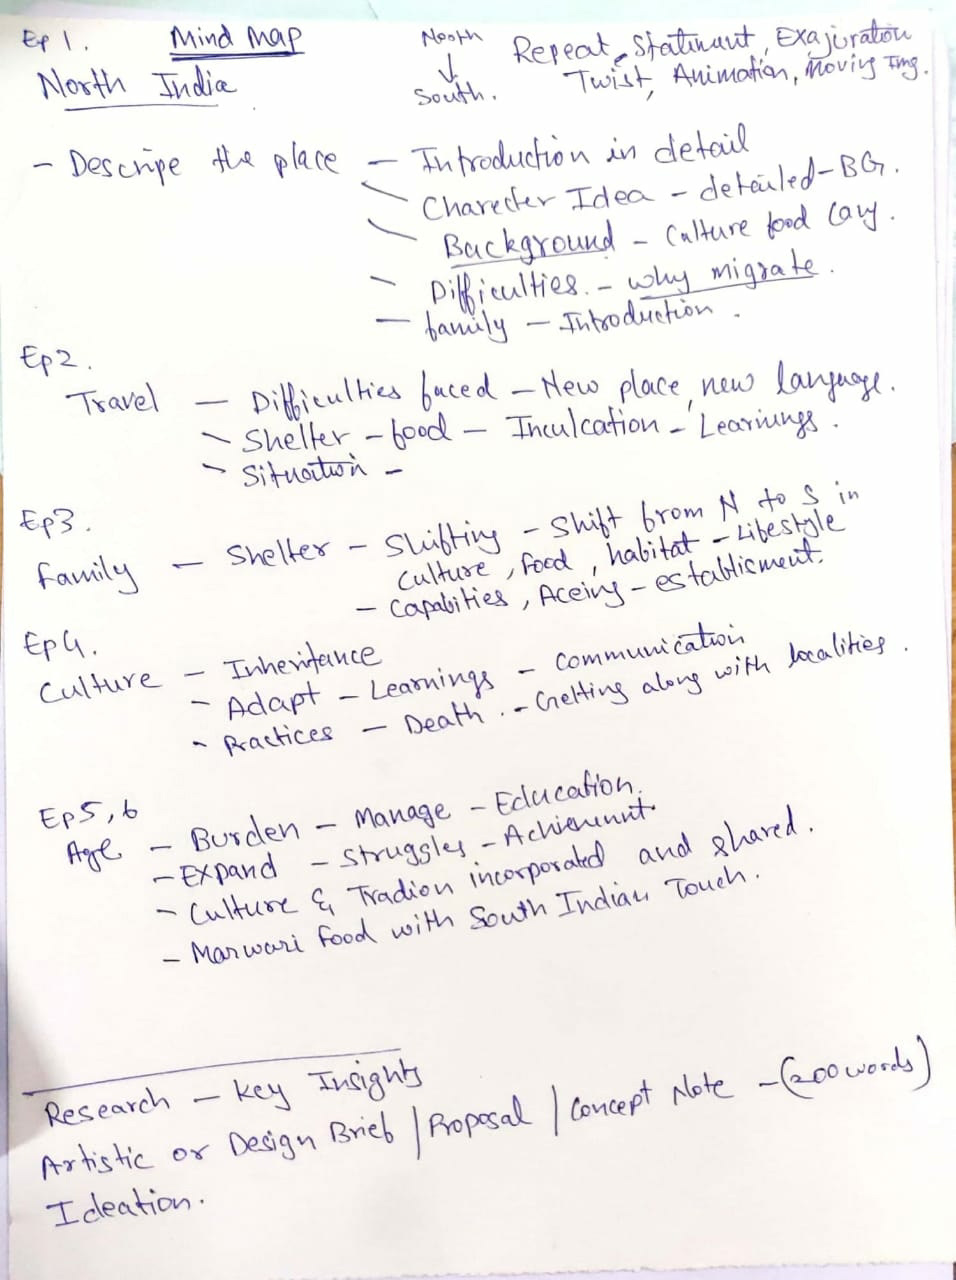 Ep 1. Mind Map
North India
North
↓
South.
Repeat, Statment, Exajuration
Twist, Animation, Moving Img.
- Descripe the place - Introduction in detail
- Charecter Idea - detailed - BG.
- Background - Culture food
- Difficulties. - why migrate.
- family - Introduction.
Ep2.
Travel - Difficulties faced - New place, new language.
- Shelter - food - Inculcation - Learnings.
- Situation -
Ep3.
Family - Shelter - Shifting - Shift from N to S in
Culture, Food, habitat - Lifestyle
- Capabities, Aceing - establisment.
Ep4.
Culture - Inheritance
- Adapt - Learnings - Communication
- Practices - Death. - Getting along with localities.
Ep5, 6
Age - Burden - Manage - Education.
- Expand - Struggles - Achievment.
- Culture & Tradion incorporated and shared.
- Marwari food with South Indian Touch.
Research - Key Insights
Artistic or Design Brief / Proposal / Concept Note - (200 words)
Ideation.